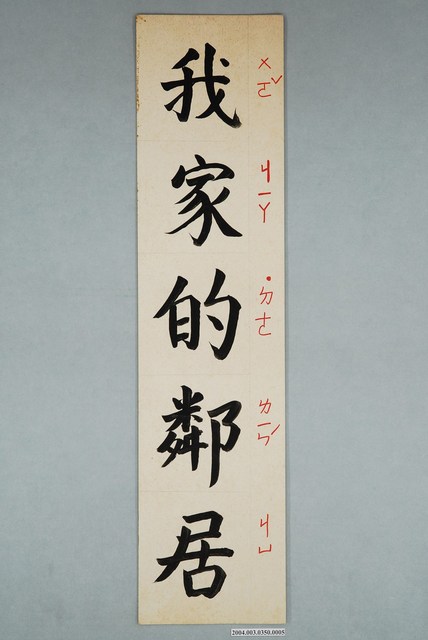 我家的鄰居
ㄨㄛˇ ㄐㄧㄚ ˙ㄉㄜ ㄌㄧㄣˊ ㄐㄩ
2004.003.0350.0005